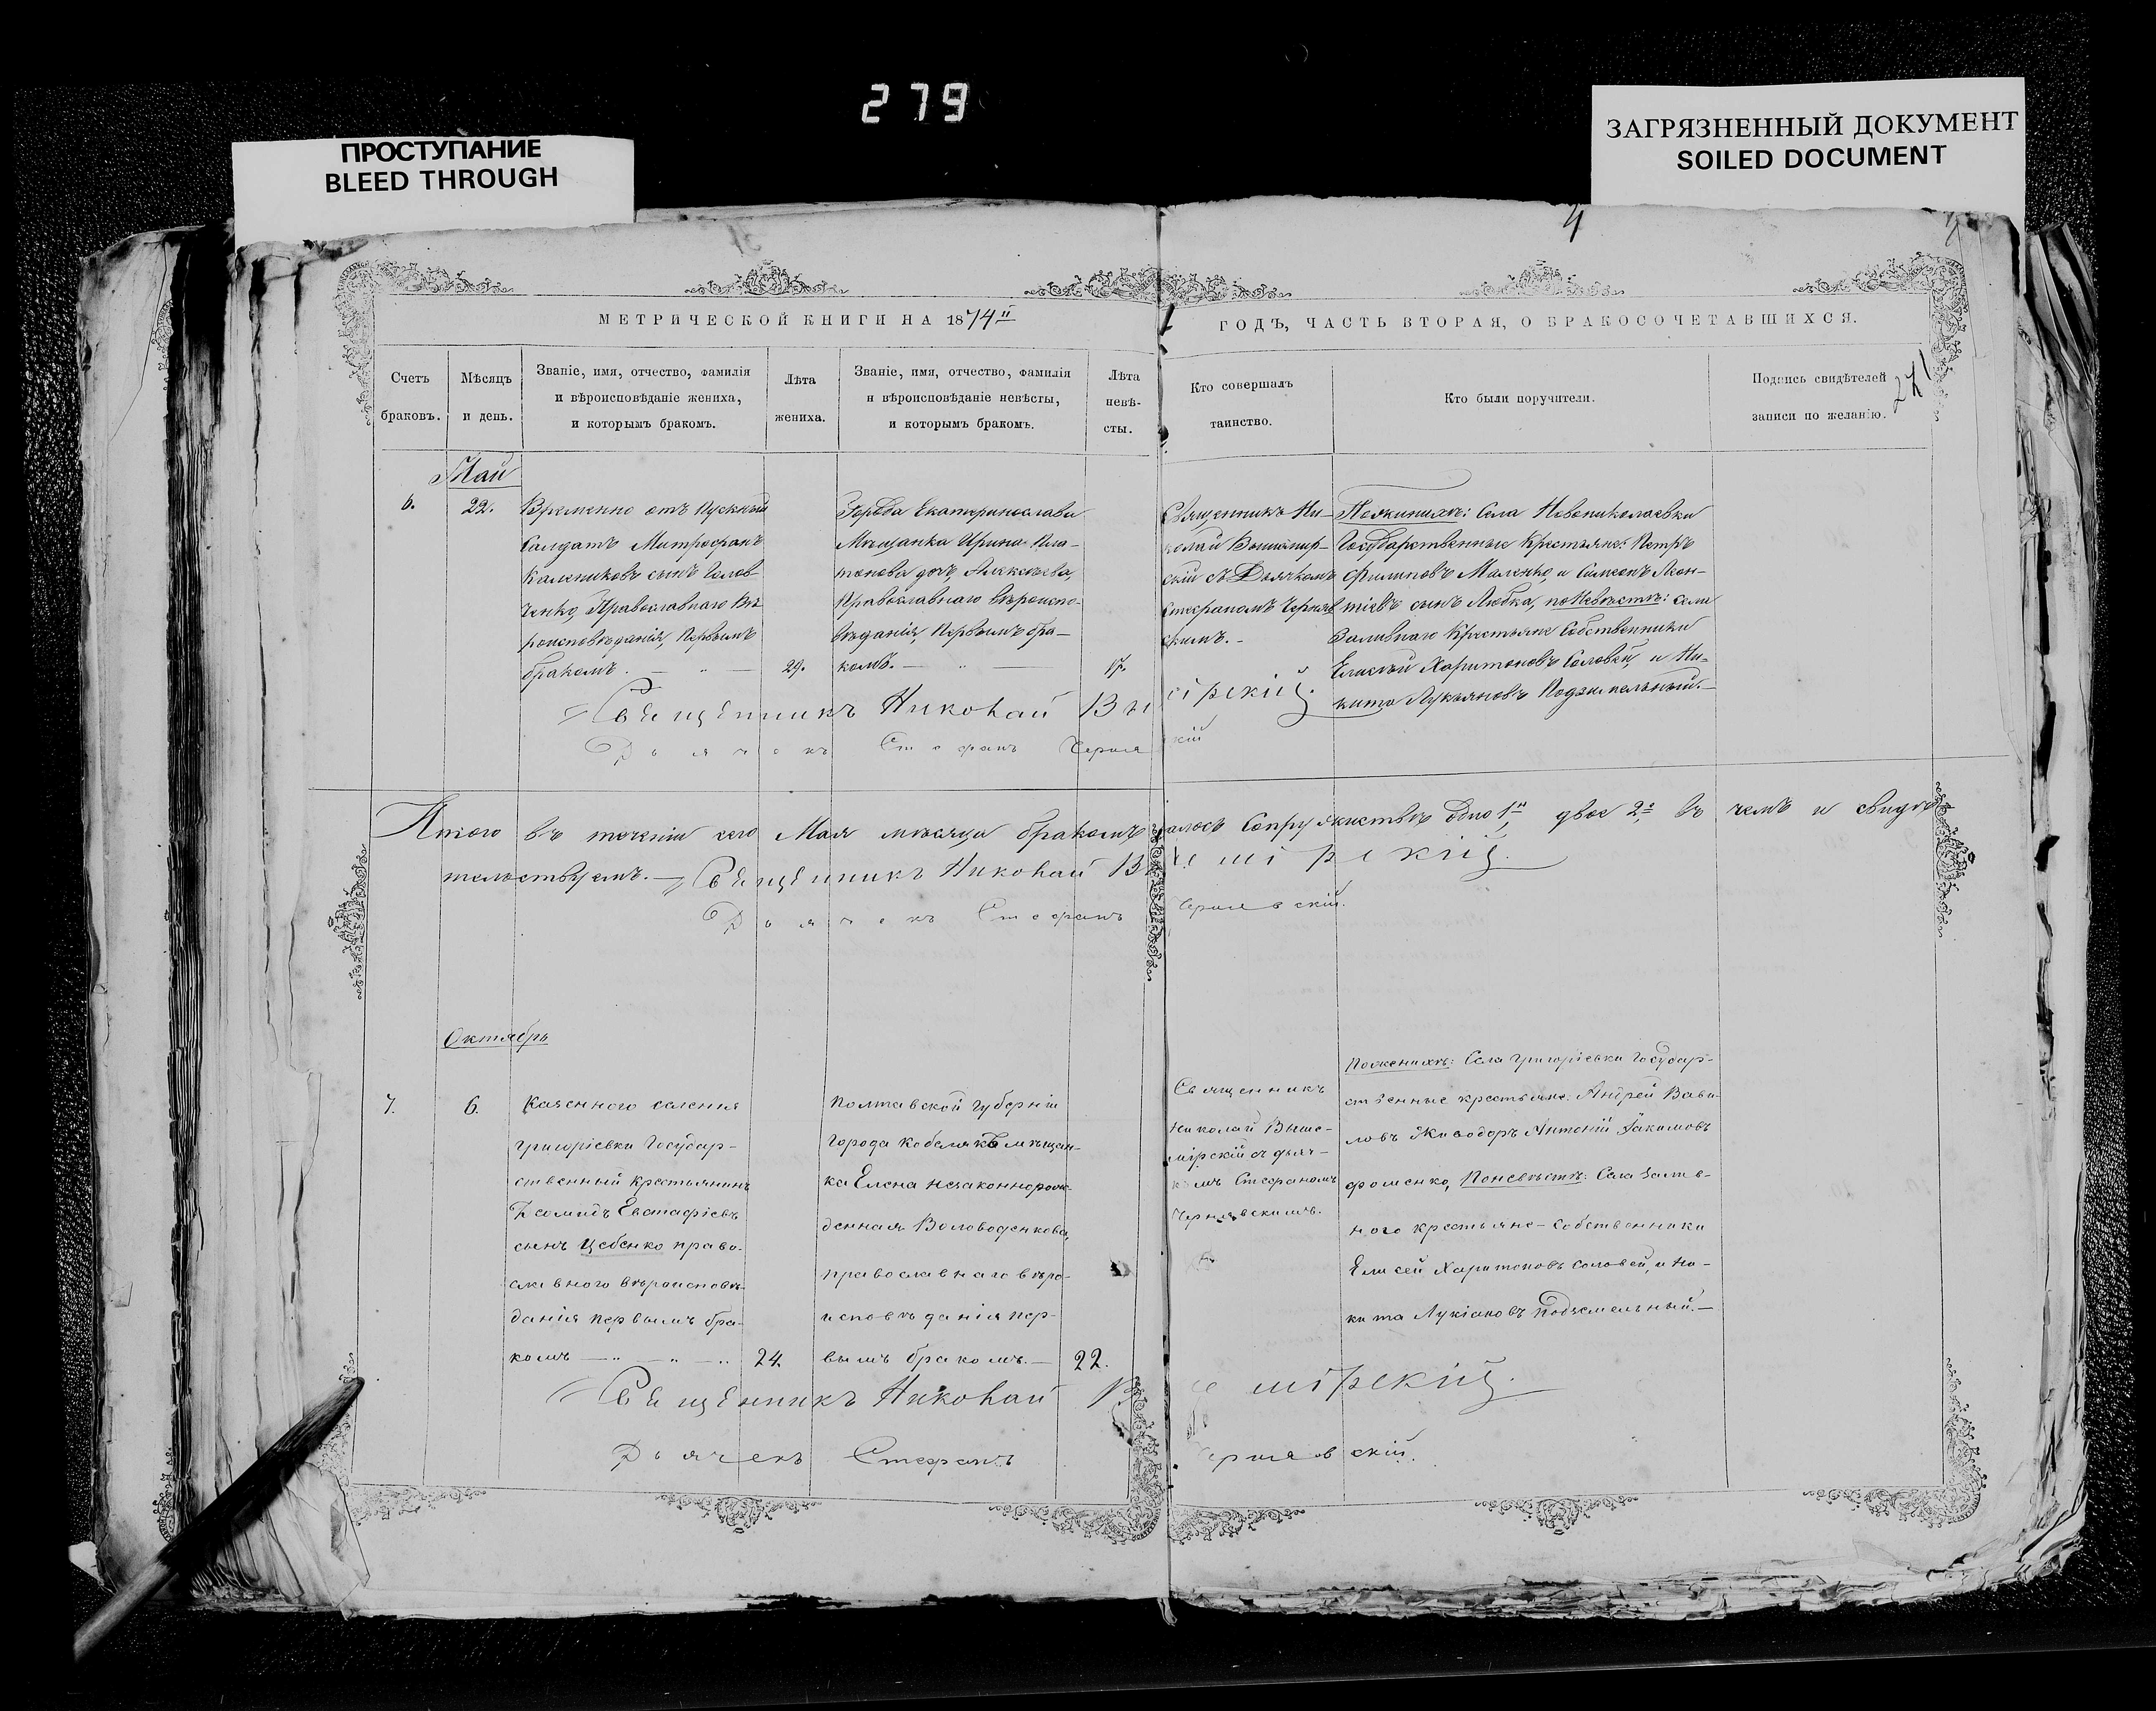 279
ПРОСТУПАНИЕ
BLEED THROUGH
ЗАГРЯЗНЕННЫЙ ДОКУМЕНТ
SOILED DOCUMENT
МЕТРИЧЕСКОЙ КНИГИ НА 1874й
ГОДЪ, ЧАСТЬ ВТОРАЯ, О БРАКОСОЧЕТАВШИХСЯ.
Счетъ
браковъ.
Мѣсяцъ
и день.
Званіе, имя, отчество, фамилія
и вѣроисповѣданіе жениха,
и которымъ бракомъ.
Лѣта
жениха.
Званіе, имя, отчество, фамилія
и вѣроисповѣданіе невѣсты,
и которымъ бракомъ.
Лѣта
невѣ-
сты.
Кто совершалъ
таинство.
Кто были поручители.
Подпись свидѣтелей
записи по желанію.
Май
6.
22.
Временно отъ Пускный
Солдатъ Митрофанъ
Калениковъ сынъ Голов
ченко, Православнаго Вѣ
роисповѣданія, Первымъ
бракомъ.
29.
Города Екатеринослава
Мѣщанка Ирина Пла-
тонова дочь, Алексѣева,
Православнаго вѣроиспо-
вѣданія, Первымъ бра-
комъ.
17.
Священникъ Ни-
колай Вышемір-
скій съ Дьячкомъ
Стефаномъ Черняв
скимъ.
По женихѣ: Села Новониколаевки
Государственные Крестьяне: Петръ
Филиповъ Маленко, и Симеонъ Леон-
тіевъ сынъ Любка, по Невѣстѣ: села
Заливнаго Крестьяне Собственники
Елисѣй Харитоновъ Соловей, и Ни-
кита Лукьяновъ Подземельный.
Священникъ Николай Вы ірскій.
Дьячокъ Стефанъ Черня кій
Итого въ теченіи сего Мая мѣсяца бракомъ алось Супружествъ одно 1й двое 2е въ чемъ и свидѣ
тельствуемъ. Священникъ Николай В е мірскій.
Дьячокъ Стефанъ Чернявскій.
Октябрь
7.
6.
Казенного селения
Григоріевки Государ-
ственный крестьянинъ
Діомидъ Евстафіевъ
сынъ Цебенко право-
славного вѣроисповѣ-
данія первымъ бра-
комъ
24.
Полтавской губерніи
города Кобелякъ мѣщан-
ка Елена незаконнорож-
денная Воловоденкова,
православнаго вѣро-
исповѣданія пер-
вымъ бракомъ.
22.
Священникъ
Николай Выше-
мірскій съ дьяч-
комъ Стефаномъ
Чернявскимъ.
По женихѣ: Села Григоріевки Государ-
ственные крестьяне: Андрей Вави-
ловъ Живодоръ Антоній Іакимовъ
Фоменко, По невѣстѣ: Села Залив-
ного крестьяне-собственники
Елисей Харитоновъ Соловей, и Ни-
кита Лукіановъ Подземельный.
Священникъ Николай В е мірскій.
Дьячекъ Стефанъ ернявскій.